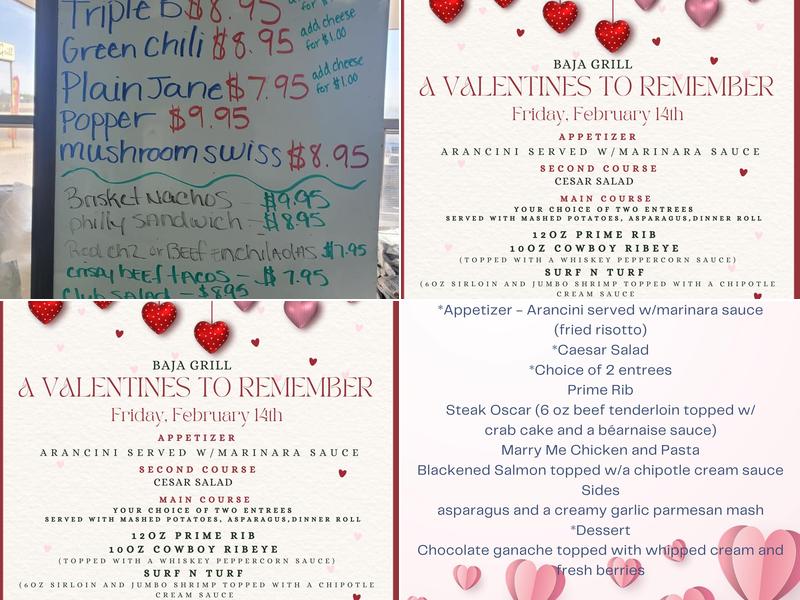 Triple B $8.95
Green Chili $8.95
add cheese
for $1.00
Plain Jane $7.95
add cheese
for $1.00
Popper $9.95
mushroom swiss $8.95
Brisket Nachos - $9.95
philly SANDwich - $8.95
Red chz or BEEF ENchilAdAs $7.95
crispy bEEf tAcos - $7.95
Club SAlAd - $8.95
BAJA GRILL
A VALENTINES TO REMEMBER
Friday, February 14th
APPETIZER
ARANCINI SERVED W/MARINARA SAUCE
SECOND COURSE
CESAR SALAD
MAIN COURSE
YOUR CHOICE OF TWO ENTREES
SERVED WITH MASHED POTATOES, ASPARAGUS,DINNER ROLL
12OZ PRIME RIB
10OZ COWBOY RIBEYE
(TOPPED WITH A WHISKEY PEPPERCORN SAUCE)
SURF N TURF
(6OZ SIRLOIN AND JUMBO SHRIMP TOPPED WITH A CHIPOTLE
CREAM SAUCE
BAJA GRILL
A VALENTINES TO REMEMBER
Friday, February 14th
APPETIZER
ARANCINI SERVED W/MARINARA SAUCE
SECOND COURSE
CESAR SALAD
MAIN COURSE
YOUR CHOICE OF TWO ENTREES
SERVED WITH MASHED POTATOES, ASPARAGUS,DINNER ROLL
12OZ PRIME RIB
10OZ COWBOY RIBEYE
(TOPPED WITH A WHISKEY PEPPERCORN SAUCE)
SURF N TURF
(6OZ SIRLOIN AND JUMBO SHRIMP TOPPED WITH A CHIPOTLE
CREAM SAUCE
*Appetizer – Arancini served w/marinara sauce
(fried risotto)
*Caesar Salad
*Choice of 2 entrees
Prime Rib
Steak Oscar (6 oz beef tenderloin topped w/
crab cake and a béarnaise sauce)
Marry Me Chicken and Pasta
Blackened Salmon topped w/a chipotle cream sauce
Sides
asparagus and a creamy garlic parmesan mash
*Dessert
Chocolate ganache topped with whipped cream and
fresh berries